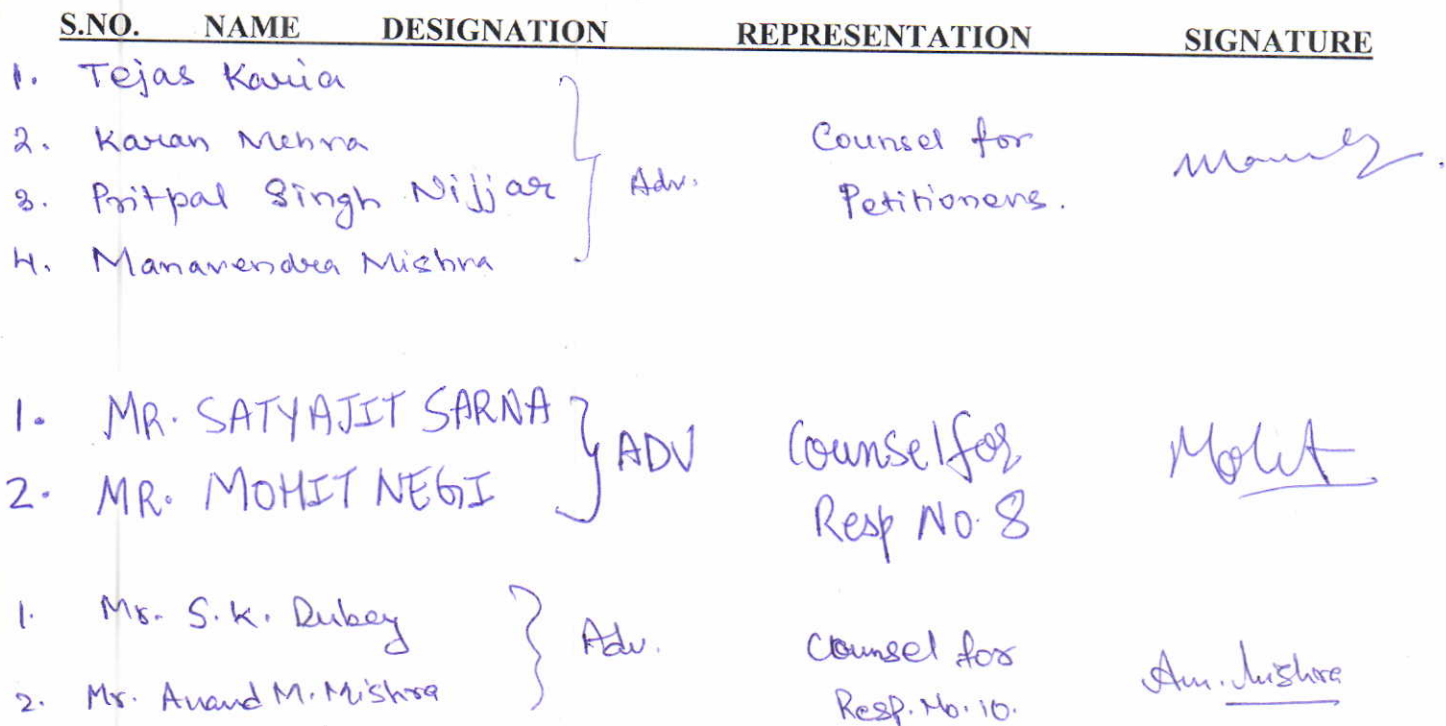 S.NO. NAME DESIGNATION REPRESENTATION SIGNATURE
1. Tejas Karia
2. Karan Mehra
3. Pritpal Singh Nijjar
4. Manavendra Mishra
Adv.
Counsel for
Petitioners.
1. MR. SATYAJIT SARNA
2. MR. MOHIT NEGI
ADV
Counsel for
Resp No. 8
Mohit
1. Mr. S.K. Dubey
2. Mr. Anand M. Mishra
Adv.
Counsel for
Resp. No. 10.
Am. Mishra